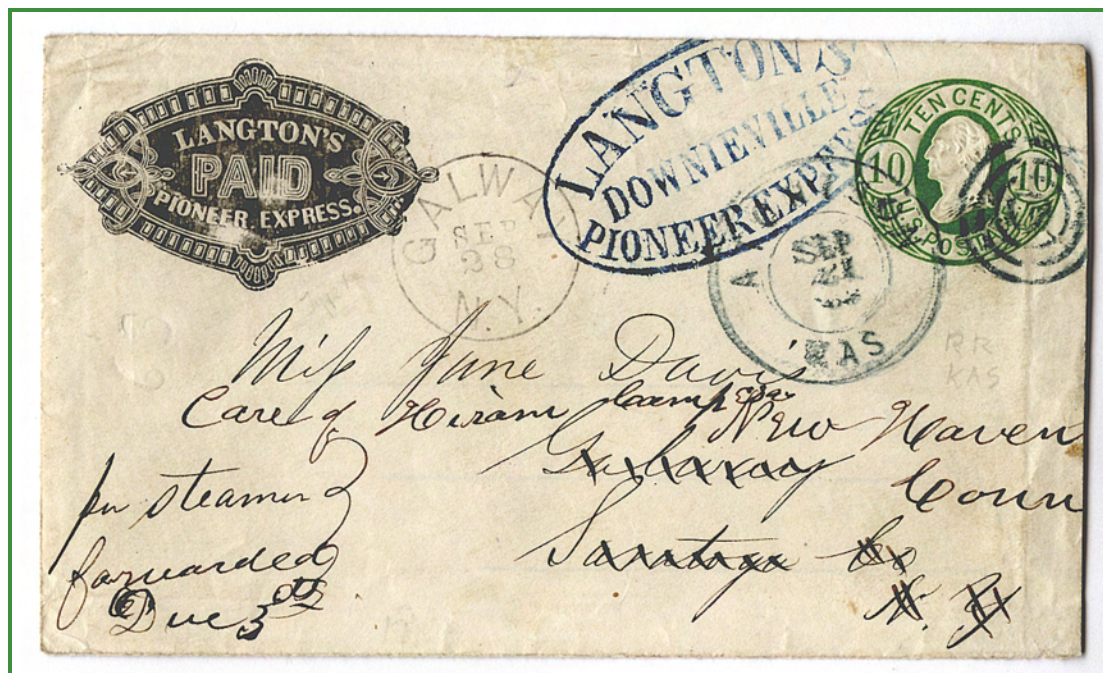 LANGTON'S
PAID
PIONEER EXPRESS.
LANGTON'S
DOWNIEVILLE
PIONEER EXPRESS
TEN CENTS
10 10
U.S. POSTAGE
GALWAY
SEP
28
N.Y.
A
SEP
21
KAS
RR
KAS
Miss Jane Davis
Care of Hiram Camp Esqr
New Haven
Galway Conn
Saratoga Co
N. Y
per steamer
forwarded
Due 3 cts